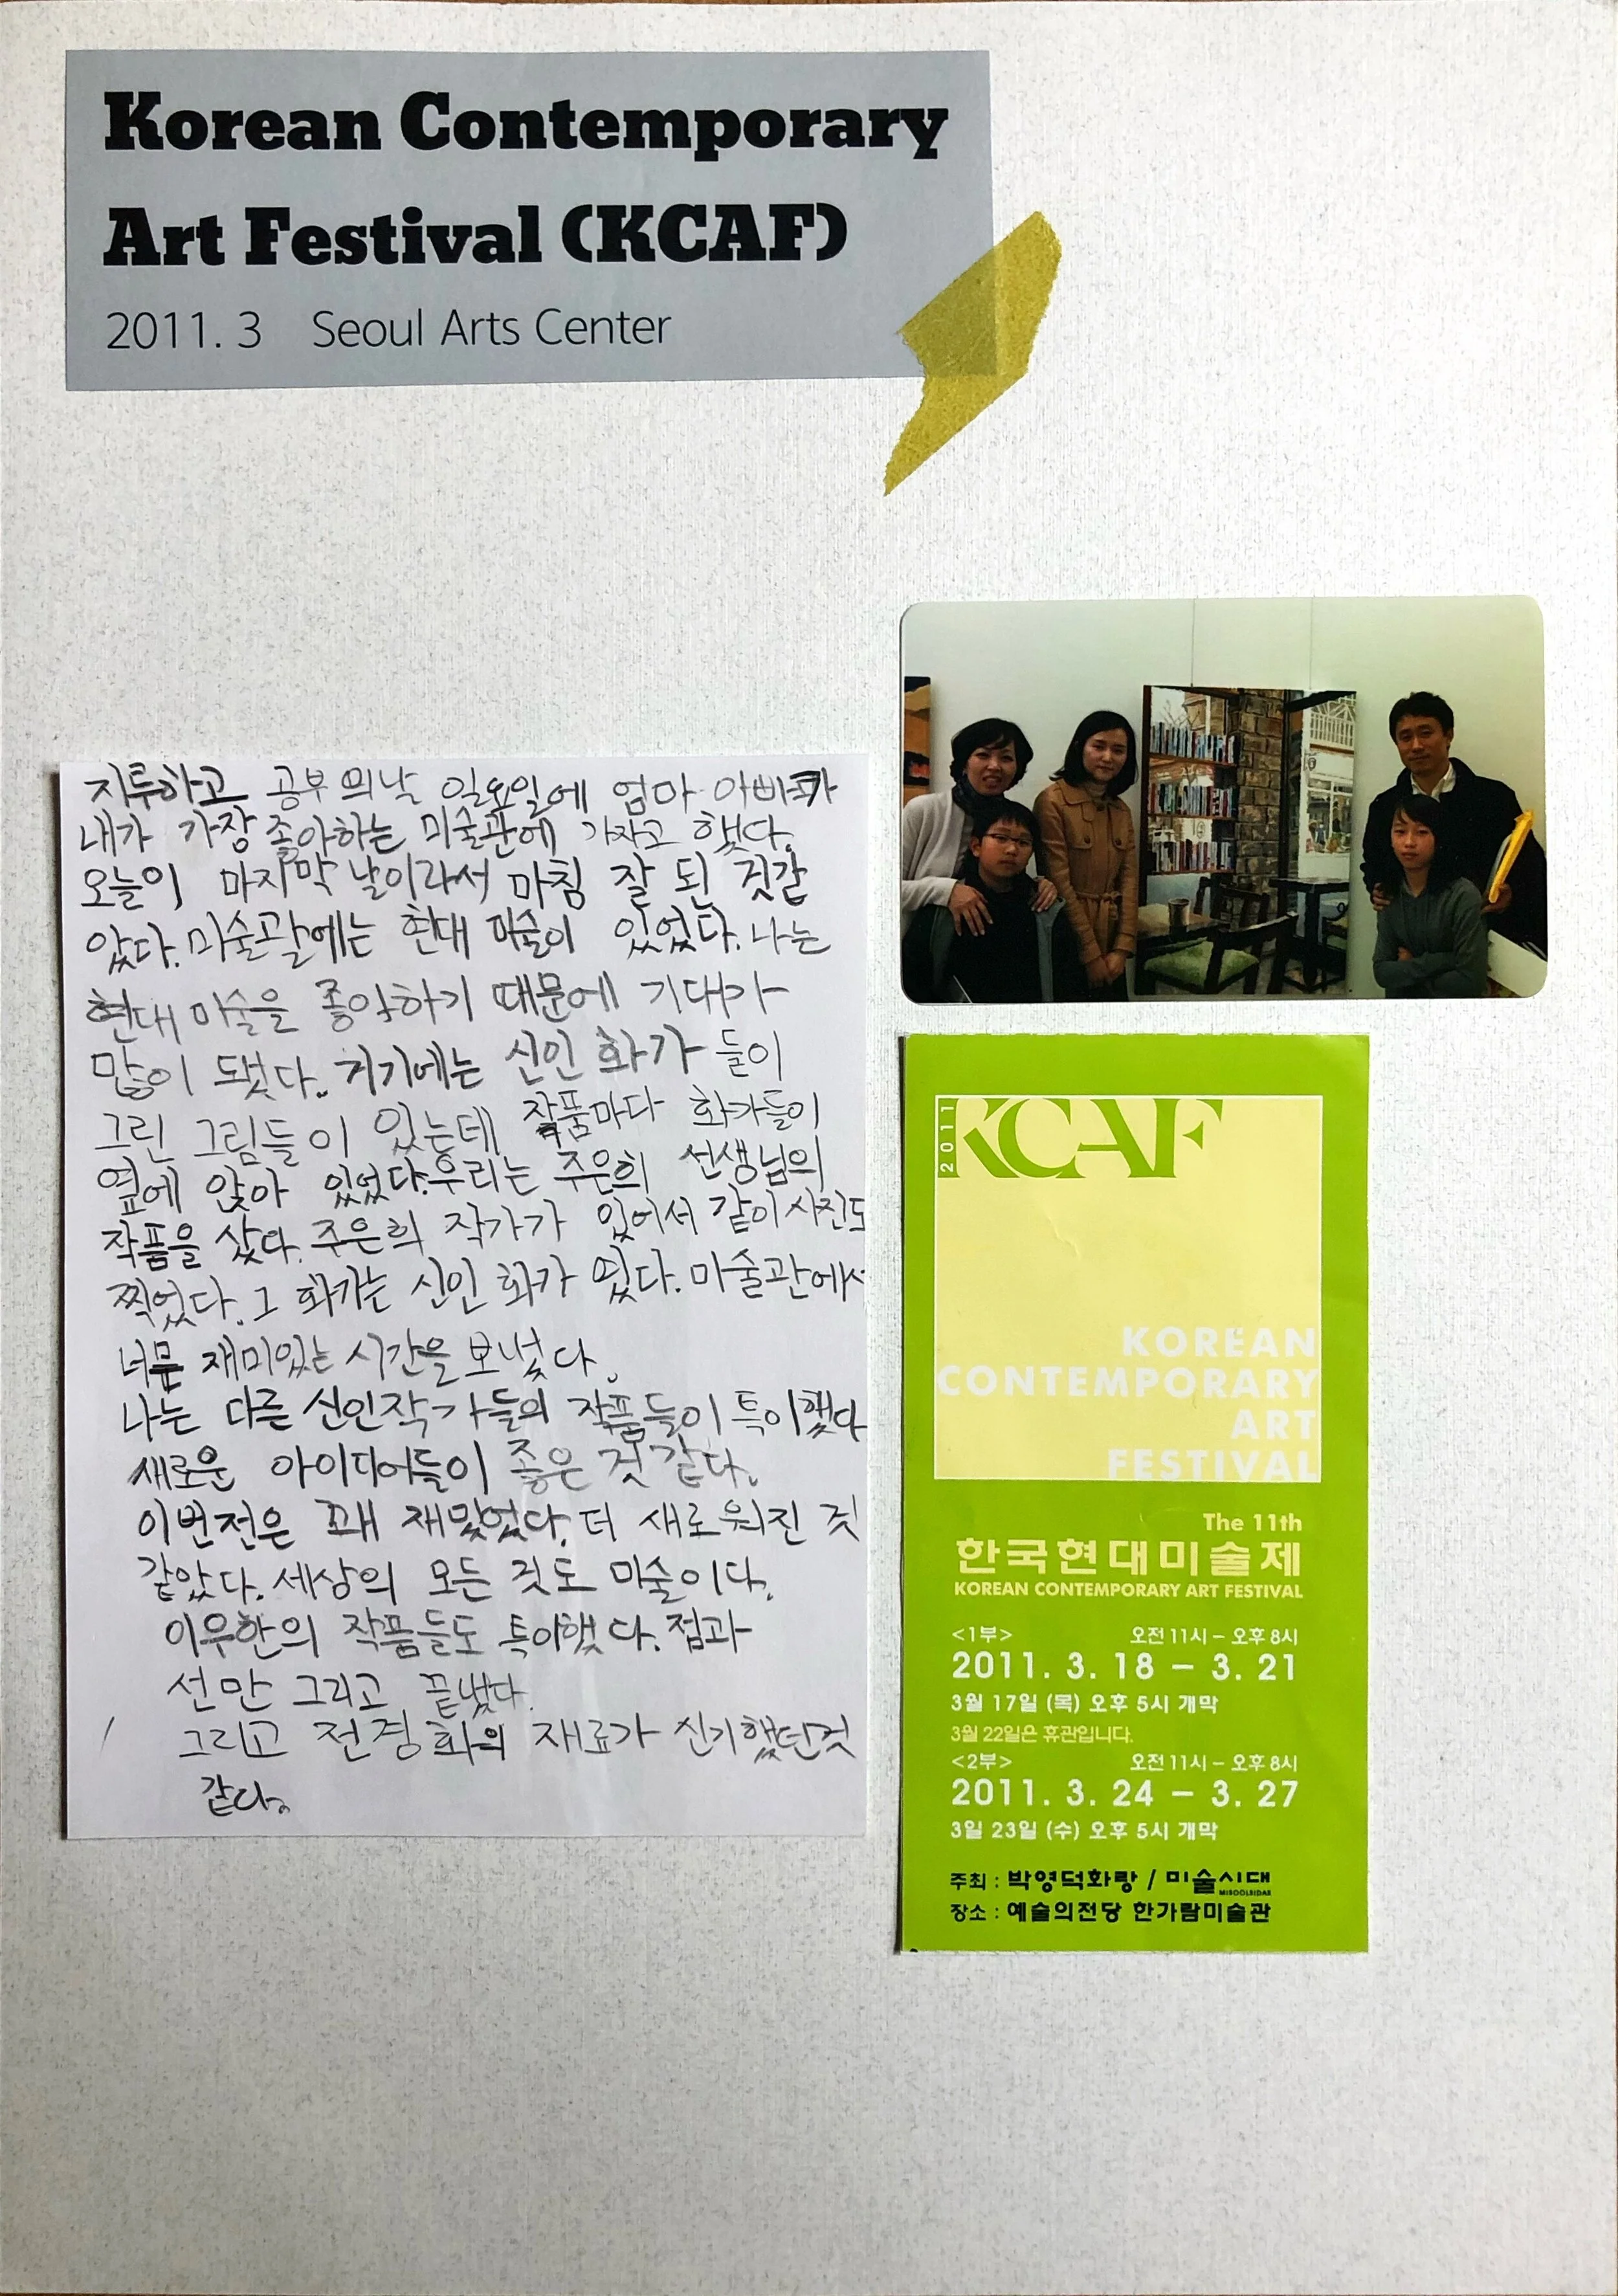 Korean Contemporary
Art Festival (KCAF)
2011. 3 Seoul Arts Center
지루하고 공부의날 일요일에 엄마 아빠가
내가 가장 좋아하는 미술관에 가자고 했다.
오늘이 마지막 날이라서 마침 잘 된 것같
았다. 미술관에는 현대 미술이 있었다. 나는
현대 미술을 좋아하기 때문에 기대가
많이 됐다. 거기에는 신인 화가 들이
그린 그림들이 있는데 작품마다 화가들이
옆에 앉아 있었다. 우리는 주은희 선생님의
작품을 샀다. 주은희 작가가 있어서 같이 사진도
찍었다. 그 화가는 신인 화가 였다. 미술관에서
너무 재미있는 시간을 보냈다.
나는 다른 신인작가들의 작품들이 특이했다
새로운 아이디어들이 좋은 것 같다.
이번전은 꽤 재밌었다. 더 새로워진 것
같았다. 세상의 모든 것도 미술이다.
이우환의 작품들도 특이했다. 점과
선만 그리고 끝냈다.
그리고 전경화의 재료가 신기했던것
같다.
2011
KCAF
KOREAN
CONTEMPORARY
ART
FESTIVAL
The 11th
한국현대미술제
KOREAN CONTEMPORARY ART FESTIVAL
<1부> 오전 11시 – 오후 8시
2011. 3. 18 – 3. 21
3월 17일 (목) 오후 5시 개막
3월 22일은 휴관입니다.
<2부> 오전 11시 – 오후 8시
2011. 3. 24 – 3. 27
3일 23일 (수) 오후 5시 개막
주최 : 박영덕화랑 / 미술시대
MISOOLSIDAE
장소 : 예술의전당 한가람미술관